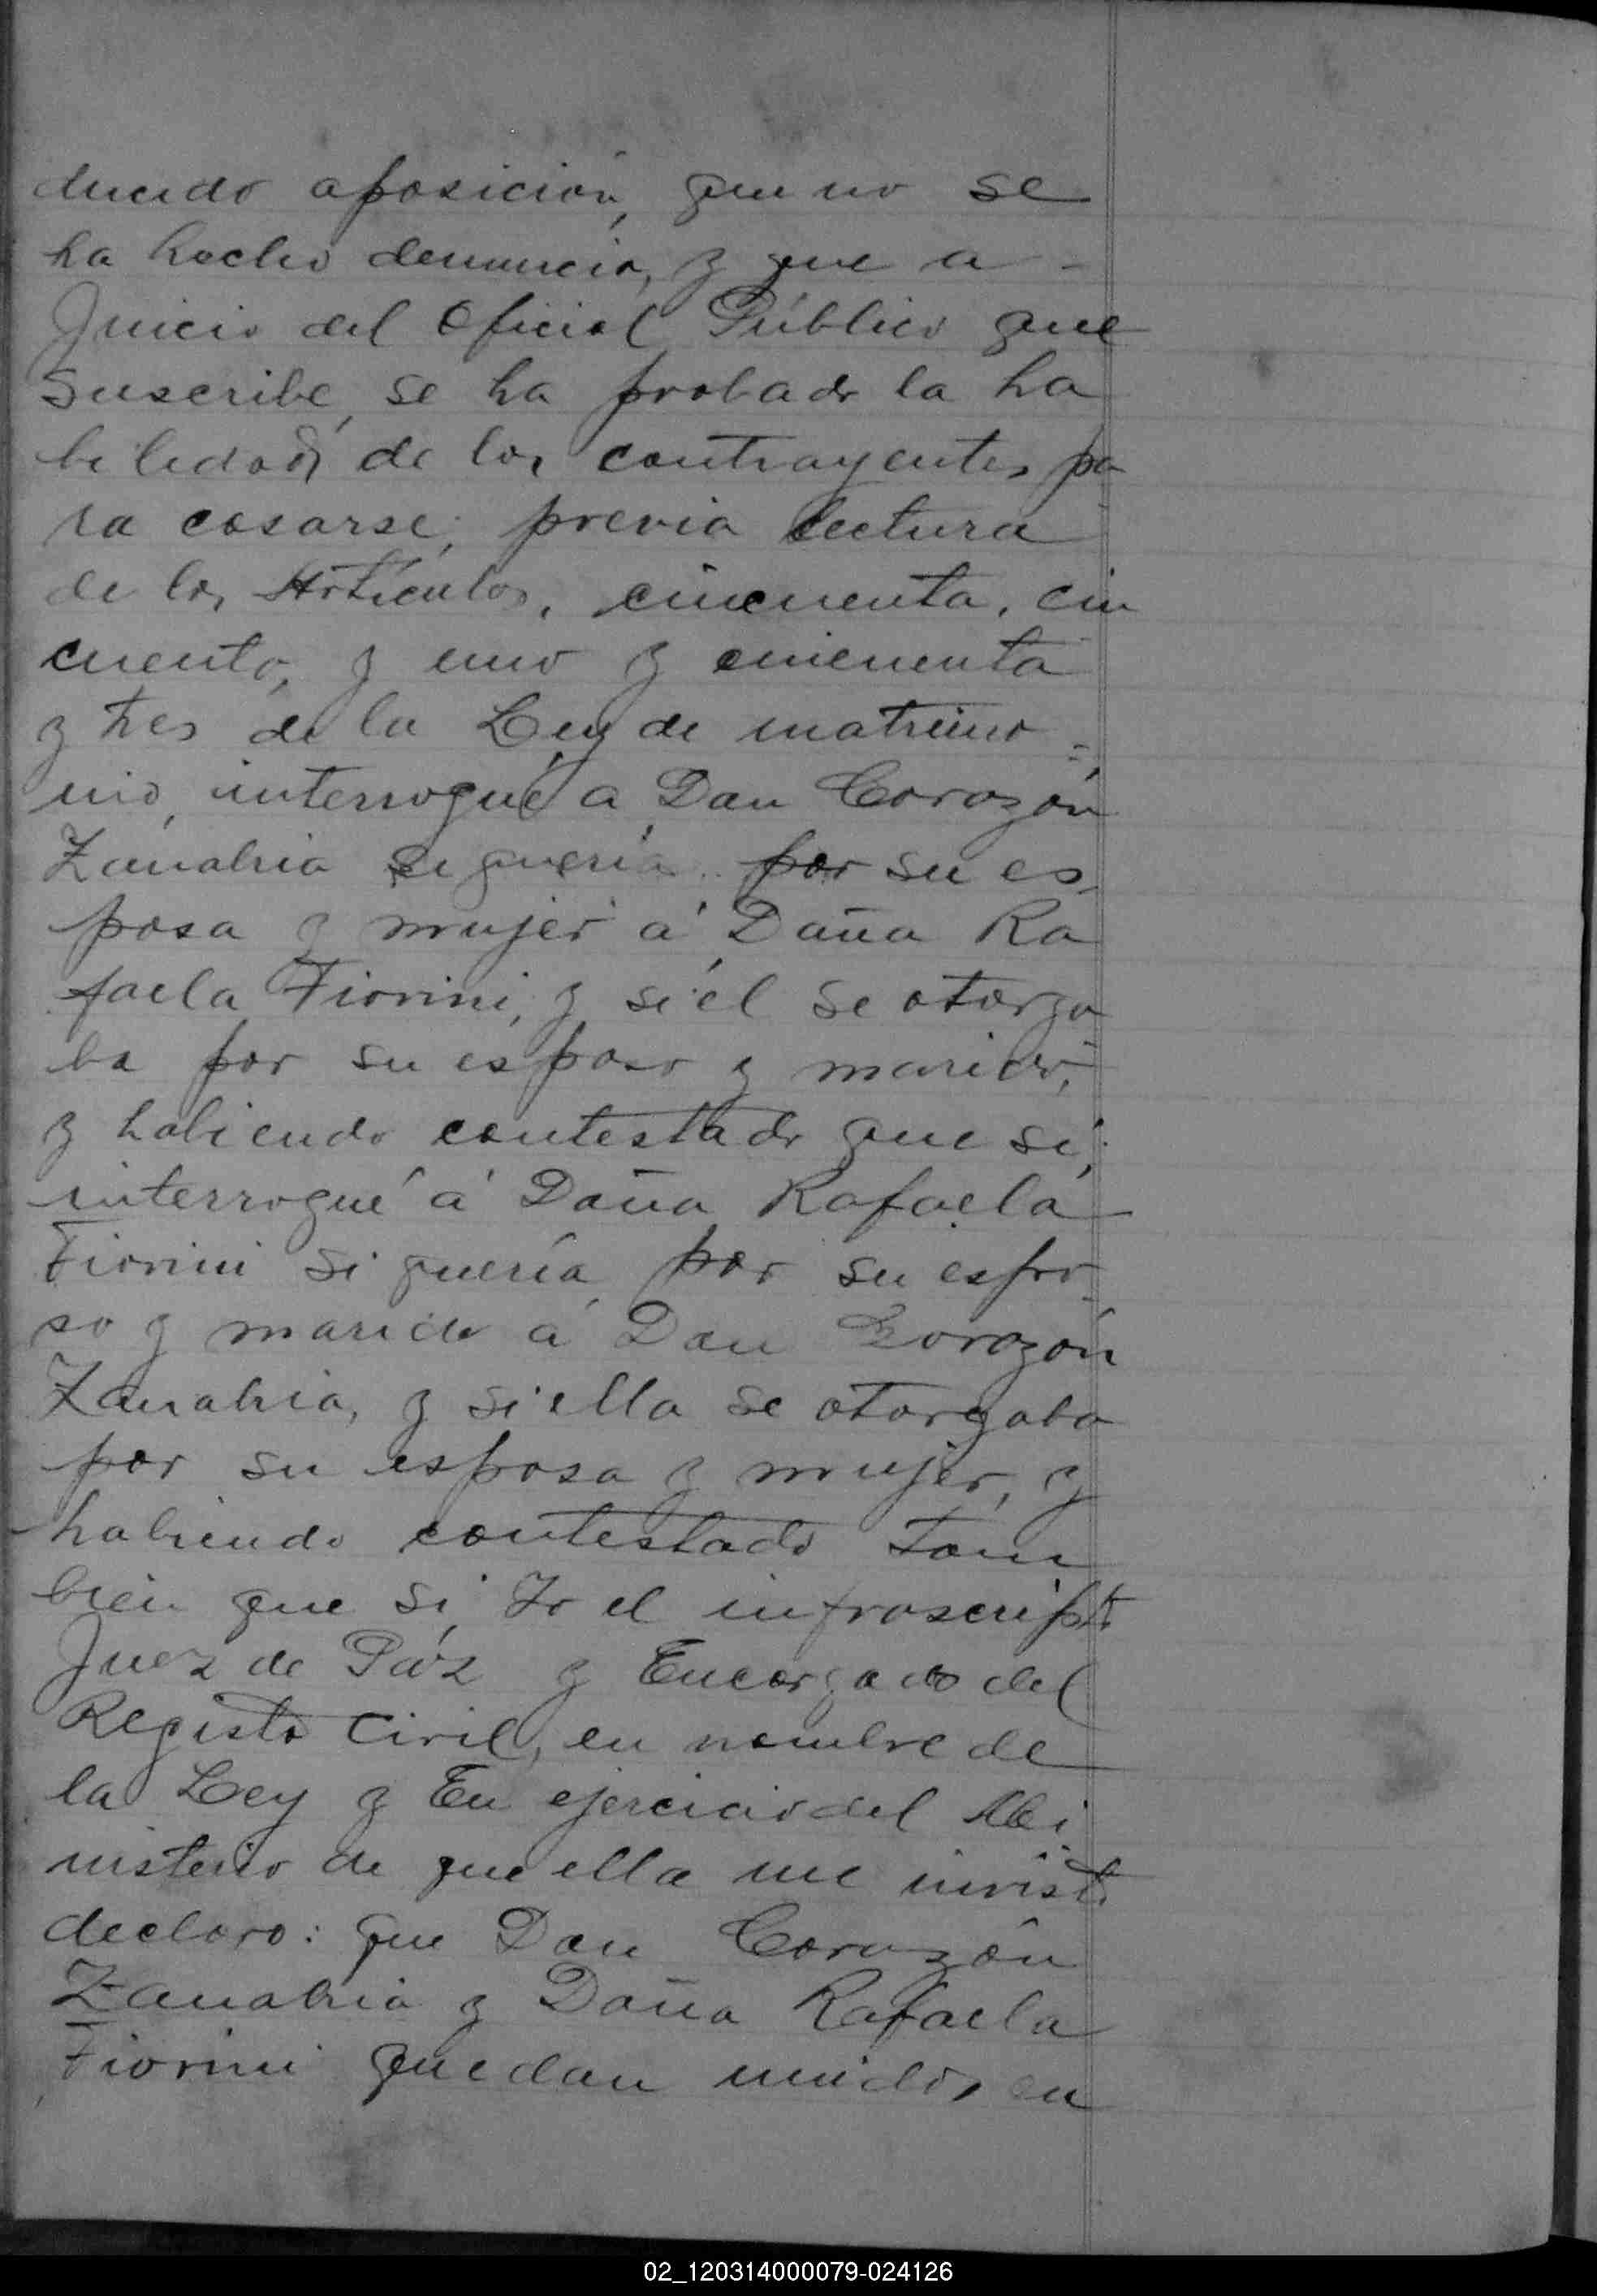 ducido oposición, que no se
ha hecho denuncia, y que a -
Juicio del Oficial Público que
suscribe, se ha probado la ha
bilidad de los contrayentes pa
ra casarse; previa lectura
de los Artículos, cincuenta, cin
cuenta, y uno y cincuenta
y tres de la Ley de matrimo =
nio, interrogué a Don Corazón
Zanabria si quería por su es
posa y mujer á Doña Ra
faela Fiorini, y si él se otorga
ba por su esposo y marido,
y habiendo contestado que sí,
interrogué á Doña Rafaela
Fiorini si quería por su espo
so y marido á Don Corazón
Zanabria, y si ella se otorgaba
por su esposa y mujer, y
habiendo contestado tam
bien que si, Yo el infrascripto
Juez de Páz y Encargado del
Registo Civil, en nombre de
la Ley y En ejercicio del Mi
nisterio de que ella me inviste
declaro: que Don Corazón
Zanabria y Doña Rafaela
Fiorini quedan unidos en
02_120314000079-024126